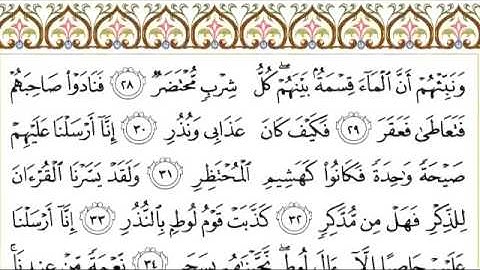 وَنَبِّئْهُمْ أَنَّ ٱلْمَآءَ قِسْمَةٌۢ بَيْنَهُمْ ۖ كُلُّ شِرْبٍۢ مُّحْتَضَرٌۭ ٢٨ فَنَادَوْا۟ صَاحِبَهُمْ
فَتَعَاطَىٰ فَعَقَرَ ٢٩ فَكَيْفَ كَانَ عَذَابِى وَنُذُرِ ٣٠ إِنَّآ أَرْسَلْنَا عَلَيْهِمْ
صَيْحَةًۭ وَٰحِدَةًۭ فَكَانُوا۟ كَهَشِيمِ ٱلْمُحْتَظِرِ ٣١ وَلَقَدْ يَسَّرْنَا ٱلْقُرْءَانَ
لِلذِّكْرِ فَهَلْ مِن مُّدَّكِرٍۢ ٣٢ كَذَّبَتْ قَوْمُ لُوطٍۭ بِٱلنُّذُرِ ٣٣ إِنَّآ أَرْسَلْنَا
عَلَيْهِمْ حَاصِبًا إِلَّآ ءَالَ لُوطٍۢ ۖ نَّجَّيْنَٰهُم بِسَحَرٍۢ ٣٤ نِّعْمَةًۭ مِّنْ عِندِنَا ۚ